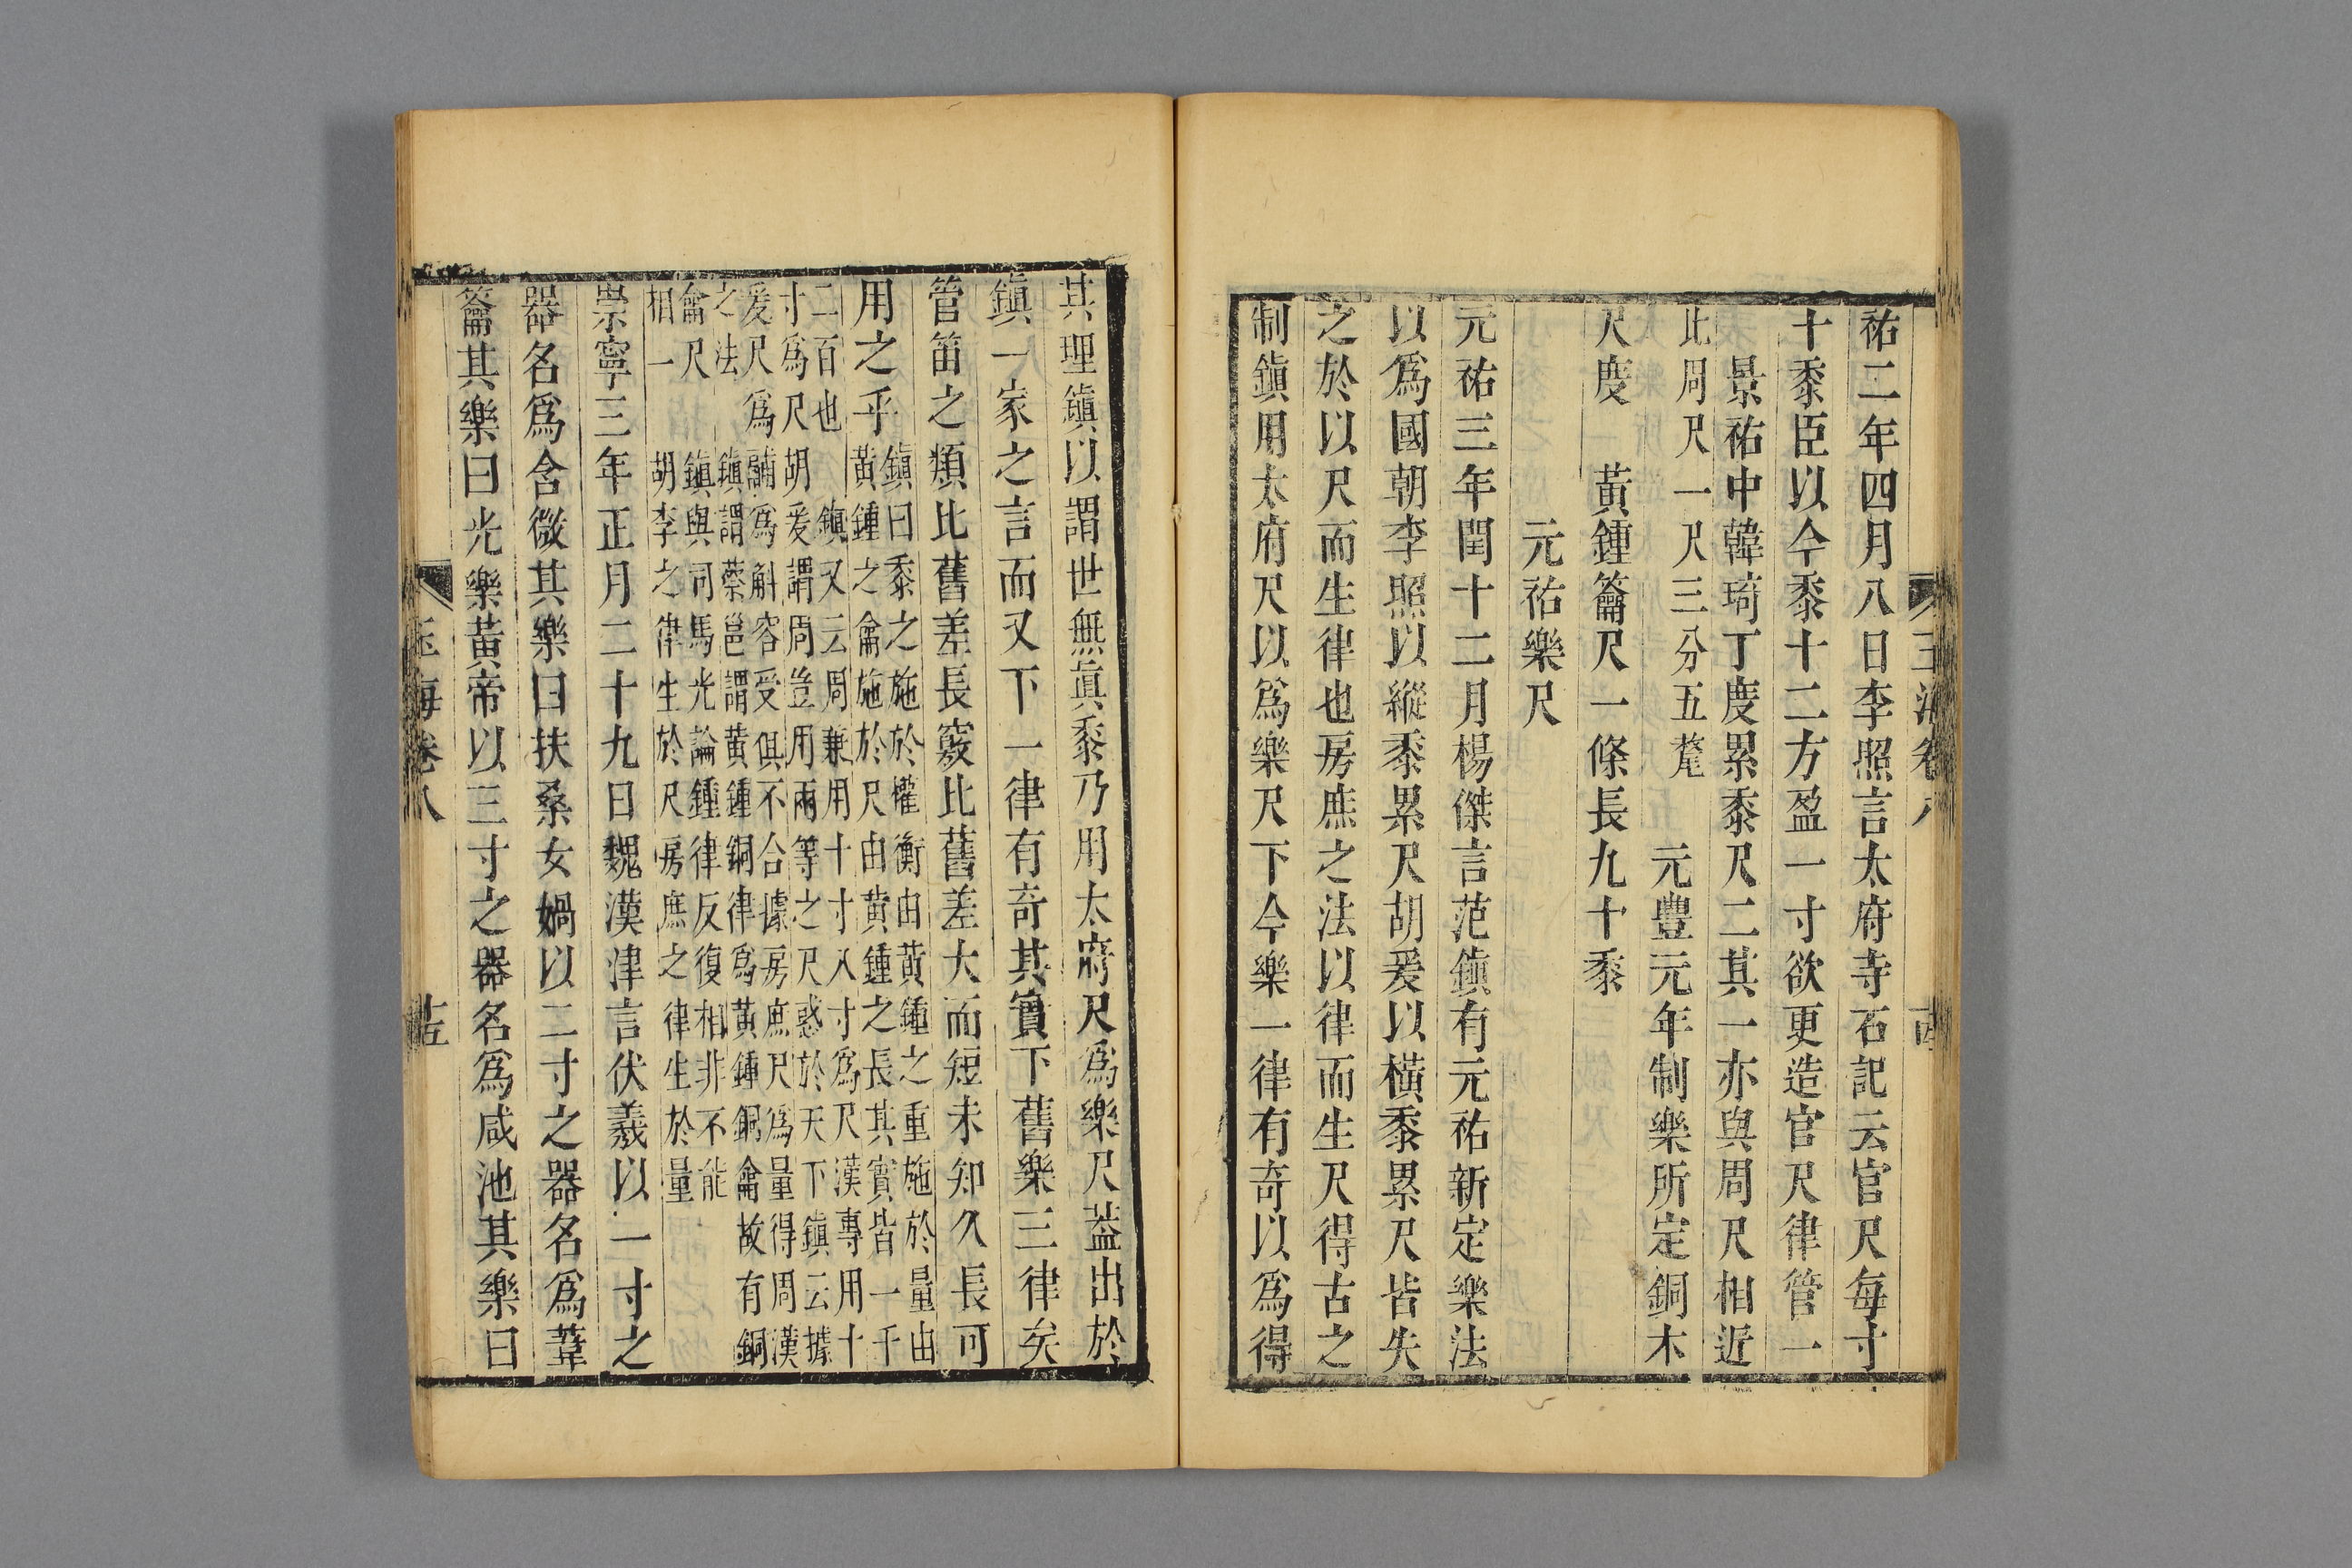 祐二年四月八日李照言太府寺石記云官尺每寸
十黍臣以今黍十二方盈一寸欲更造官尺律管一
景祐中韓琦丁度累黍尺二其一亦與周尺相近
此周尺一尺三分五氂　元豊元年制樂所定銅木
尺度　黃鍾籥尺一條長九十黍
元祐樂尺
元祐三年閏十二月楊傑言范鎮有元祐新定樂法
以爲國朝李照以縱黍累尺胡爰以橫黍累尺皆失
之於以尺而生律也房庶之法以律而生尺得古之
制鎮用太府尺以爲樂尺下今樂一律有奇以爲得
其理鎮以謂世無眞黍乃用太府尺爲樂尺葢出於
鎮一家之言而又下一律有奇其實下舊樂三律矣
管笛之類比舊差長竅比舊差大而短未知久長可
用之乎
鎮曰黍之施於權衡由黃鍾之重施於量由
黃鍾之龠施於尺由黃鍾之長其實皆一千
二百也　鎮又云周兼用十寸八寸爲尺漢專用十
寸爲尺胡爰謂周豈用兩等之尺惑於天下鎮云據
爰尺爲鬴爲斛容受俱不合據房庶尺爲量得周漢
之法　鎮謂蔡邕謂黃鍾銅律爲黃鍾銅龠故有銅
龠尺　鎮與司馬光論鍾律反復相非不能
相一　胡李之律生於尺房庶之律生於量
崇寧三年正月二十九日魏漢津言伏羲以一寸之
器名爲含微其樂曰扶桑女媧以二寸之器名爲葦
籥其樂曰光樂黃帝以三寸之器名爲咸池其樂曰
玉海卷八